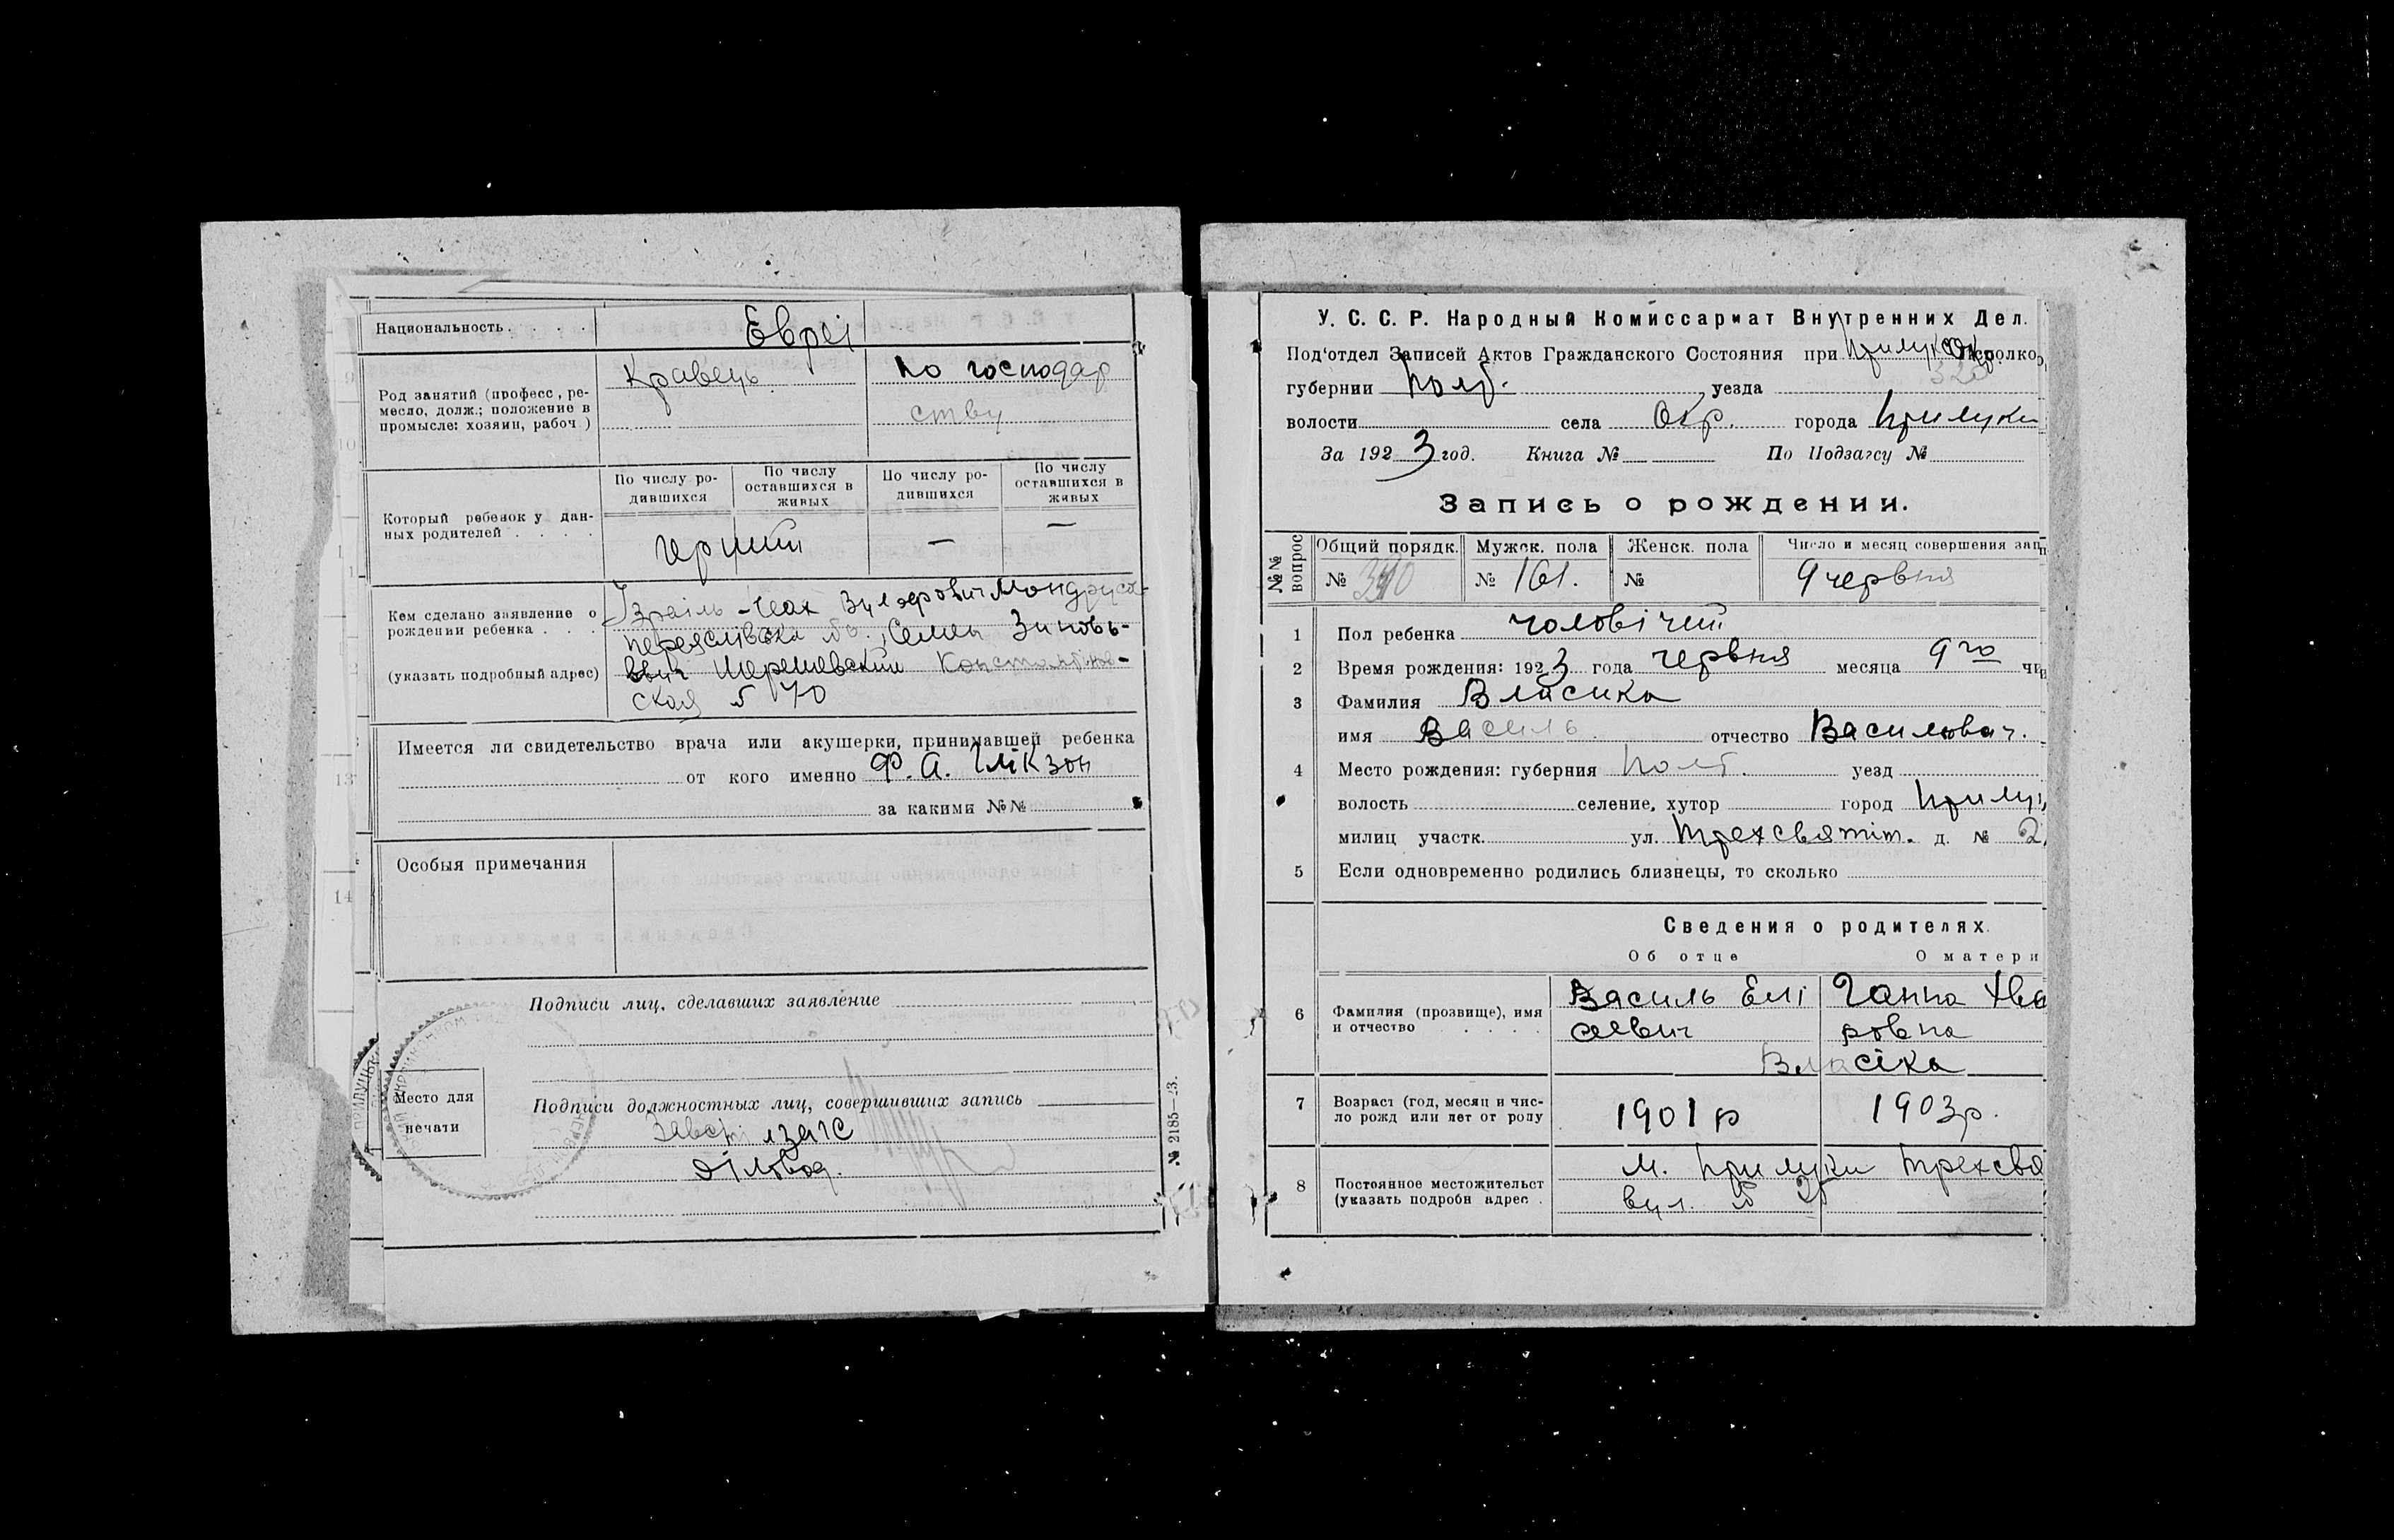 Национальность. . . . .
Евреї
Род занятий (професс, ре-
месло, долж.; положение в
промысле: хозяин, рабоч )
Кравець
по господар
ству
Который ребенок у дан-
ных родителей . . . .
По числу ро-
дившихся
По числу
оставшихся в
живых
По числу ро-
дившихся
По числу
оставшихся в
живых
— —
Кем сделано заявление о
рождении ребенка . . .
(указать подробный адрес)
Ізраіль-Ісак
Переяслівска Семен Зиновь-
евич Константинов-
ская № 70
Имеется ли свидетельство врача или акушерки, принимавшей ребенка
от кого именно Ф. А.
за какими №№
Особыя примечания
Подписи лиц, сделавших заявление
Место для
печати
Подписи должностных лиц, совершивших запись
загс
Діловод.
№ 2185—23.
13
14
У. С. С. Р. Народный Комиссариат Внутренних Дел.
Под'отдел Записей Актов Гражданского Состояния при Прилук Окр. Исполко
губернии Полт. уезда
волости села Окр. города Прилуки
За 1923 год. Книга № По Подзагсу №
Запись о рождении.
№№
вопрос
Общий порядк.
Мужск. пола
Женск. пола
Число и месяц совершения зап
№
№ 161.
№
9 червня
1 Пол ребенка чоловічий
2 Время рождения: 1923 года червня месяца 9го чи
3 Фамилия Власика
имя Василь отчество Васильович.
4 Место рождения: губерния Полт. уезд
волость селение, хутор город Прилу
милиц участк. ул. Трехсвятит. д. № 2
5 Если одновременно родились близнецы, то сколько
Сведения о родителях.
Об отце
О матери
6 Фамилия (прозвище), имя
и отчество . . . .
Василь Елі
сеевич
Ганна
ровна
Власіка
7 Возраст (год, месяц и чис-
ло рожд или лет от роду
1901 р
1903 р.
8 Постоянное местожительст
(указать подробн адрес .
м. Прилуки Трехсвя
вул. №